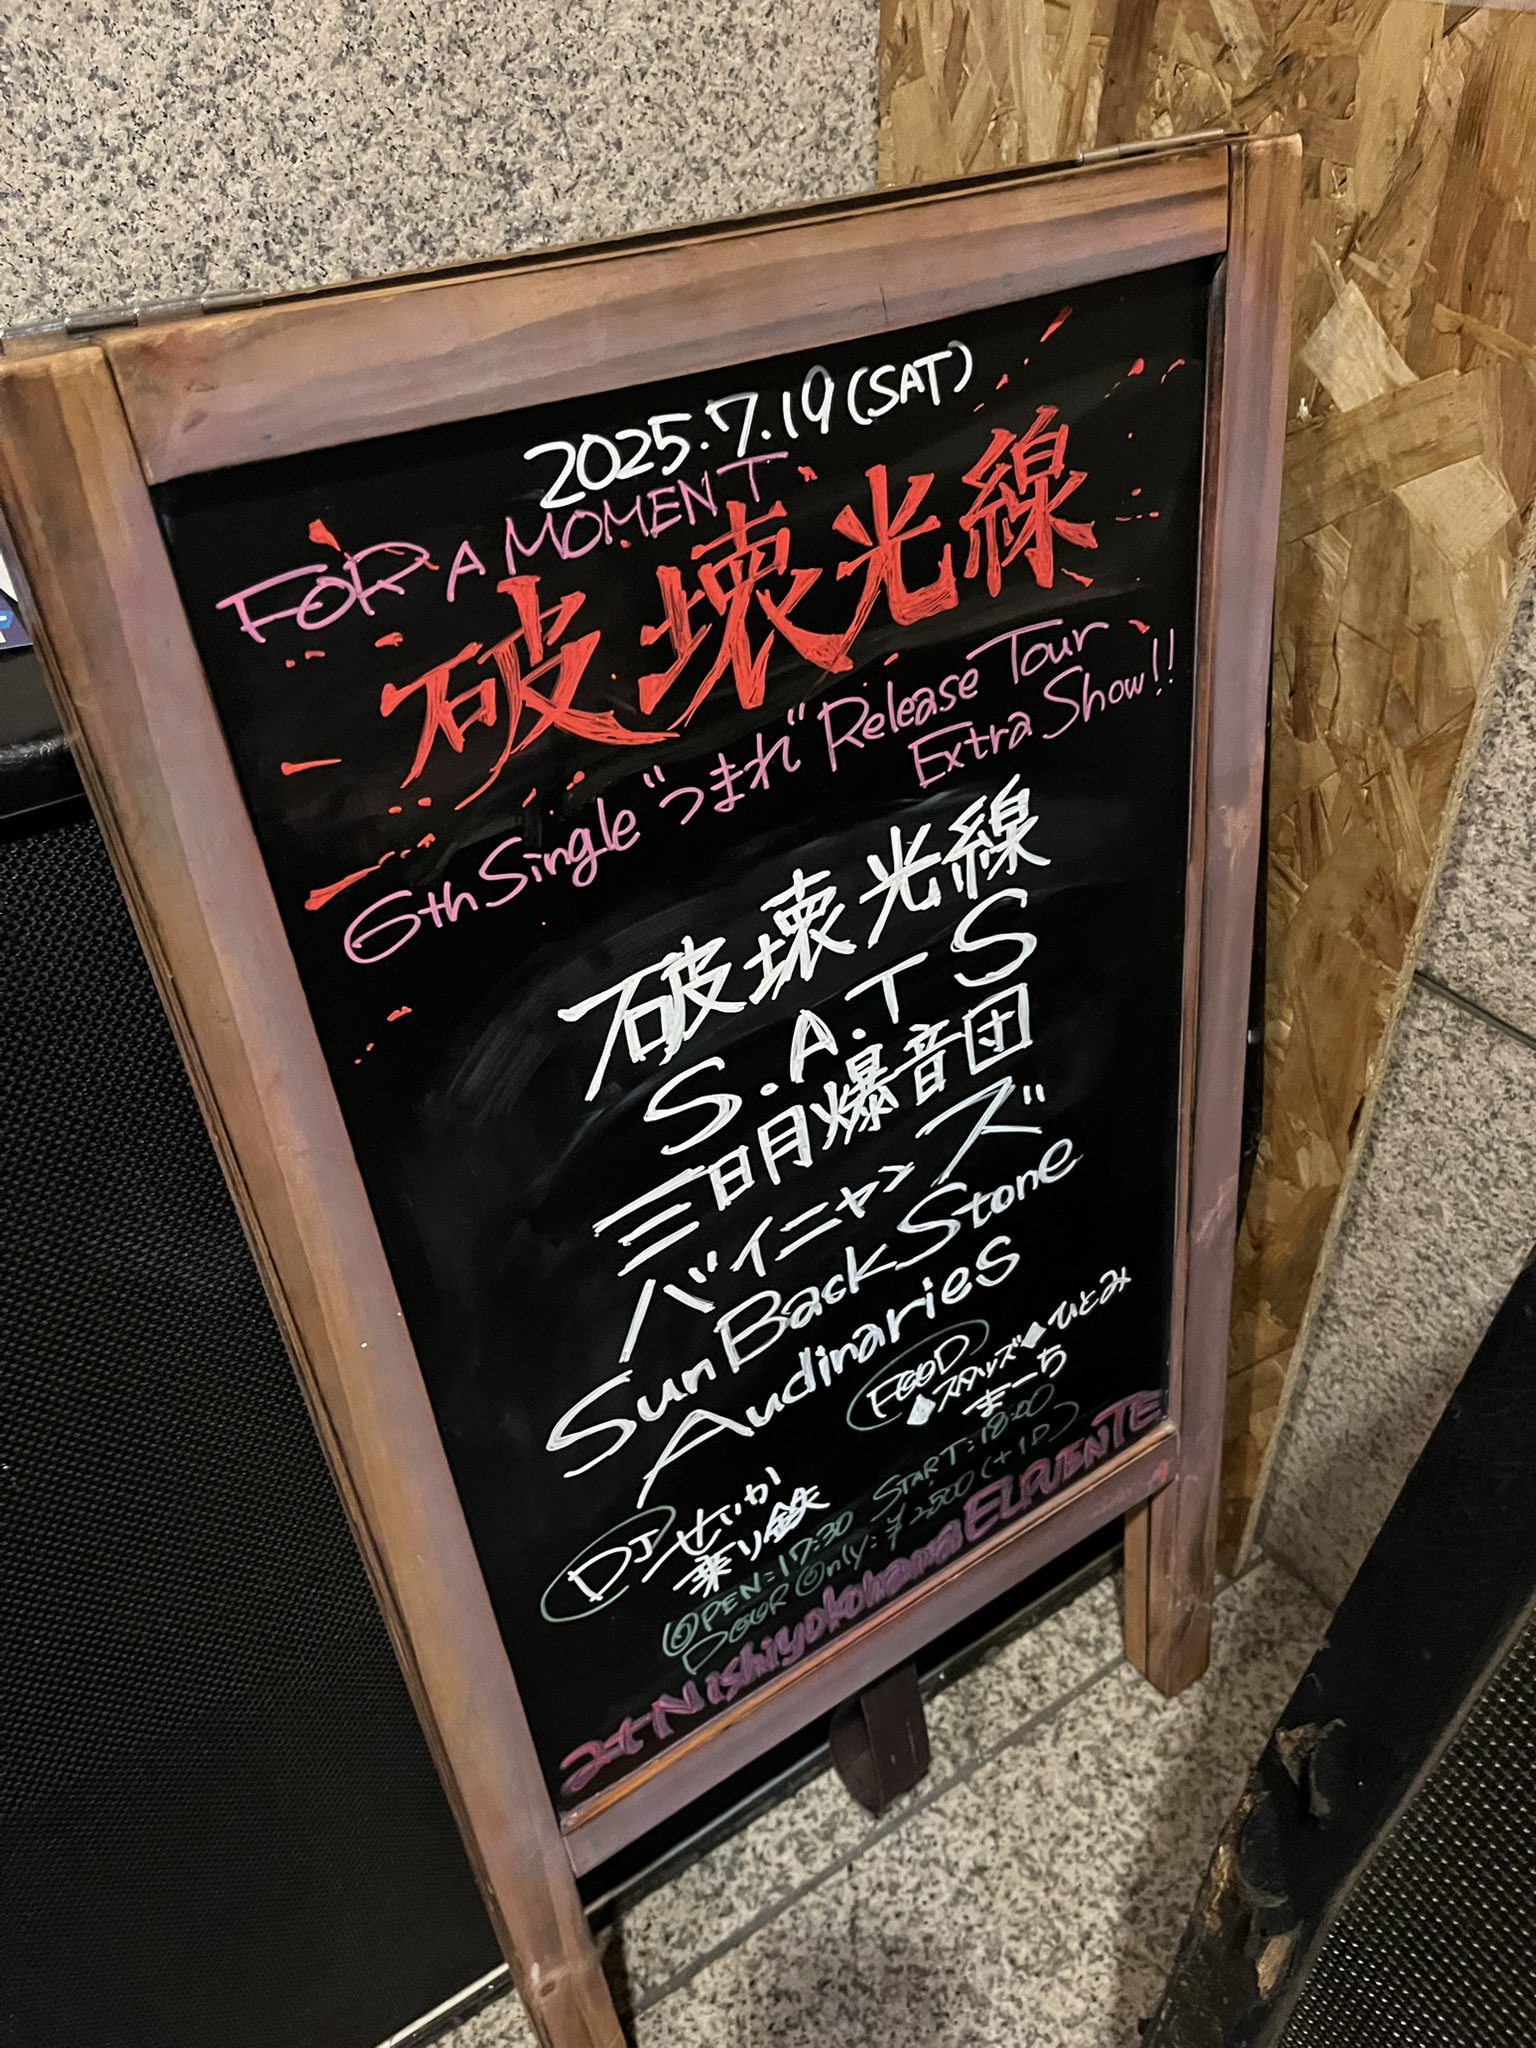 2025.7.19(SAT)
FOR A MOMENT
破壊光線
6th Single "つまれ" Release Tour
Extra Show!!
破壊光線
S.A.TS
三日月爆音団
バイニャンズ
Sun Back Stone
Audinaries
FOOD
◆スタッズ◆ひとみ
まーち
DJ せいか
乗り鉄
OPEN:17:30 START:18:00
DOOR Only:¥2,500(+1D)
at Nishiyokohama EL PUENTE